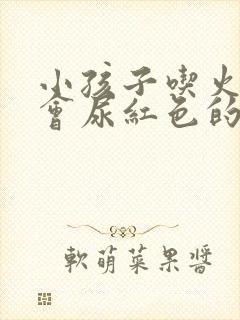 小孩子喫火
會尿紅色的
軟萌菜果醬